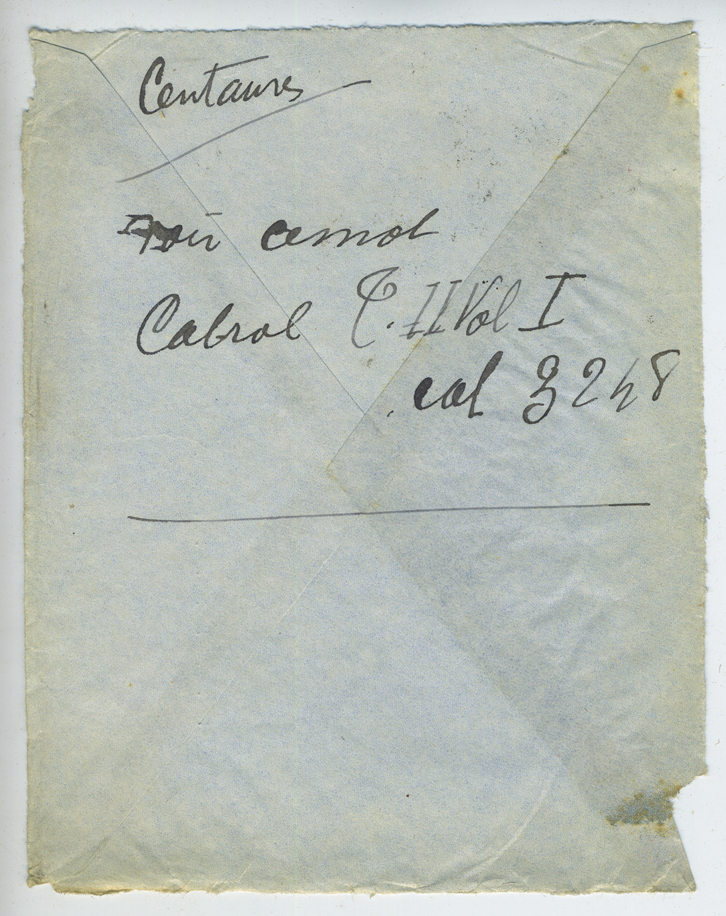 Centaures
Voir ce mot
Cabrol T. II Vol I
col 3248